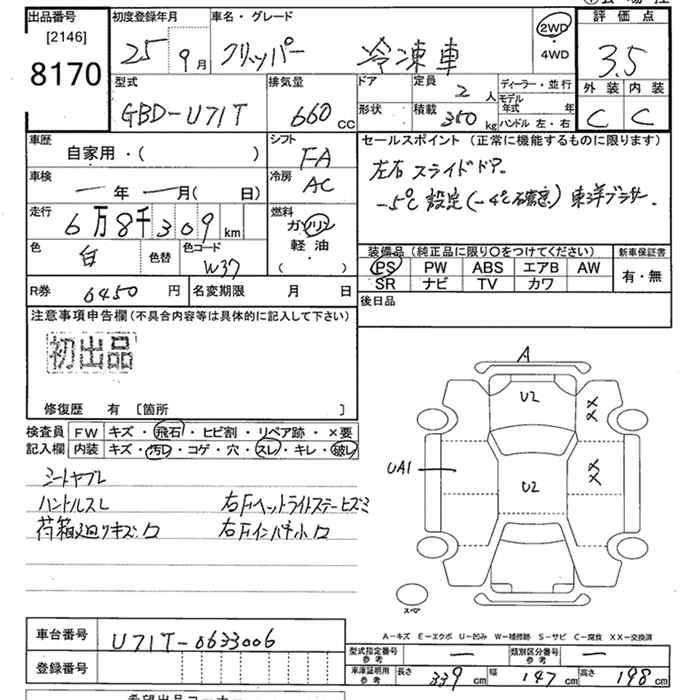 出品番号
[2146]
8170
初度登録年月
25 9月
車名・グレード
クリッパー 冷凍車
2WD
・
4WD
評価点
3.5
外装 内装
C C
型式
GBD-U71T
排気量
660 CC
ドア
形状
定員
2 人
積載
350 kg
ディーラー・並行
モデル
年式 年
ハンドル 左・右
車歴
自家用・( )
シフト
FA
車検
一 年 一 月( 日)
冷房
AC
走行
6万8千309 km
燃料
ガソリン
軽油
( )
色
白
色替
色コード
W37
セールスポイント (正常に機能するものに限ります)
左右スライドドア。
-5℃設定(-4℃確認) 東洋ブラザー.
装備品(純正品に限り○をつけてください)
PS PW ABS エアB AW
SR ナビ TV カワ
新車保証書
有・無
R券 6450 円
名変期限 月 日
後日品
注意事項申告欄(不具合内容等は具体的に記入して下さい)
初出品
修復歴 有 〔箇所 〕
検査員
記入欄
FW キズ・飛石・ヒビ割・リペア跡・×要
内装 キズ・汚レ・コゲ・穴・スレ・キレ・破レ
シートヤブレ
ハンドルスレ 右Fヘッドライトステーヒズミ
荷箱廻りキズ、ロ 右Fインパネ小ロ
A
U2
××
UA1
U2
××
スペア
A-キズ E-エクボ U-凹み W-補修跡 S-サビ C-腐食 XX-交換済
車台番号
U71T-0633006
登録番号
型式指定番号
参考
一
類別区分番号
参考
一
車庫証明用
参考
長さ 339 cm 幅 147 cm 高さ 198 cm